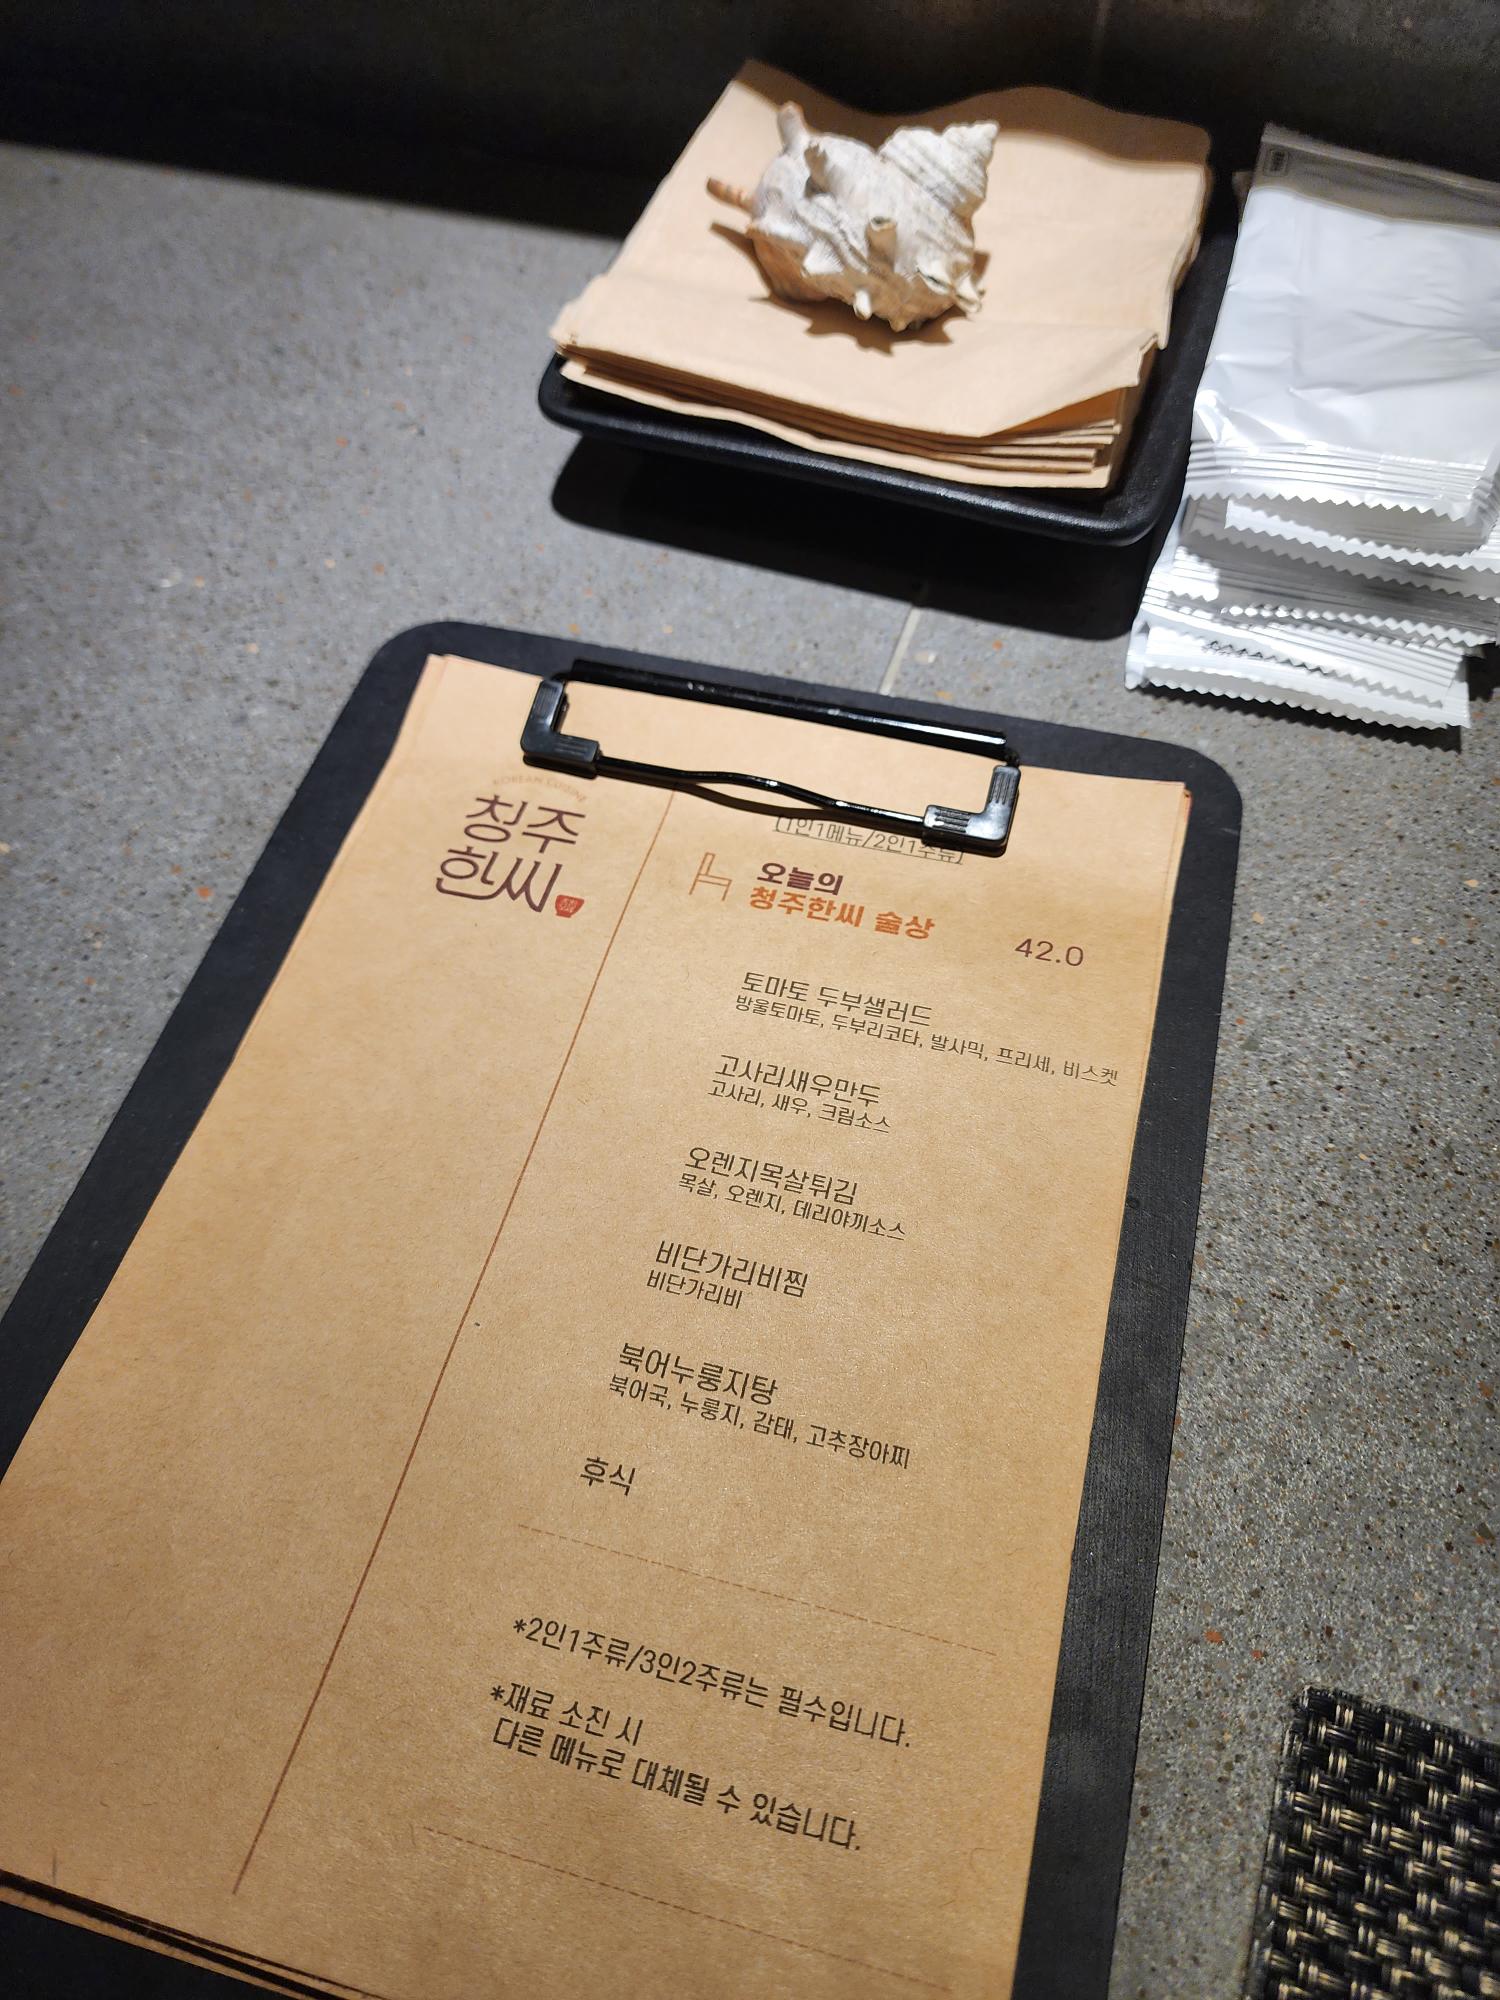 KOREAN CUISINE
청주
한씨
[1인1메뉴/2인1주류]
오늘의
청주한씨 술상
42.0
토마토 두부샐러드
방울토마토, 두부리코타, 발사믹, 프리세, 비스켓
고사리새우만두
고사리, 새우, 크림소스
오렌지목살튀김
목살, 오렌지, 데리야끼소스
비단가리비찜
비단가리비
북어누룽지탕
북어국, 누룽지, 감태, 고추장아찌
후식
*2인1주류/3인2주류는 필수입니다.
*재료 소진 시
다른 메뉴로 대체될 수 있습니다.